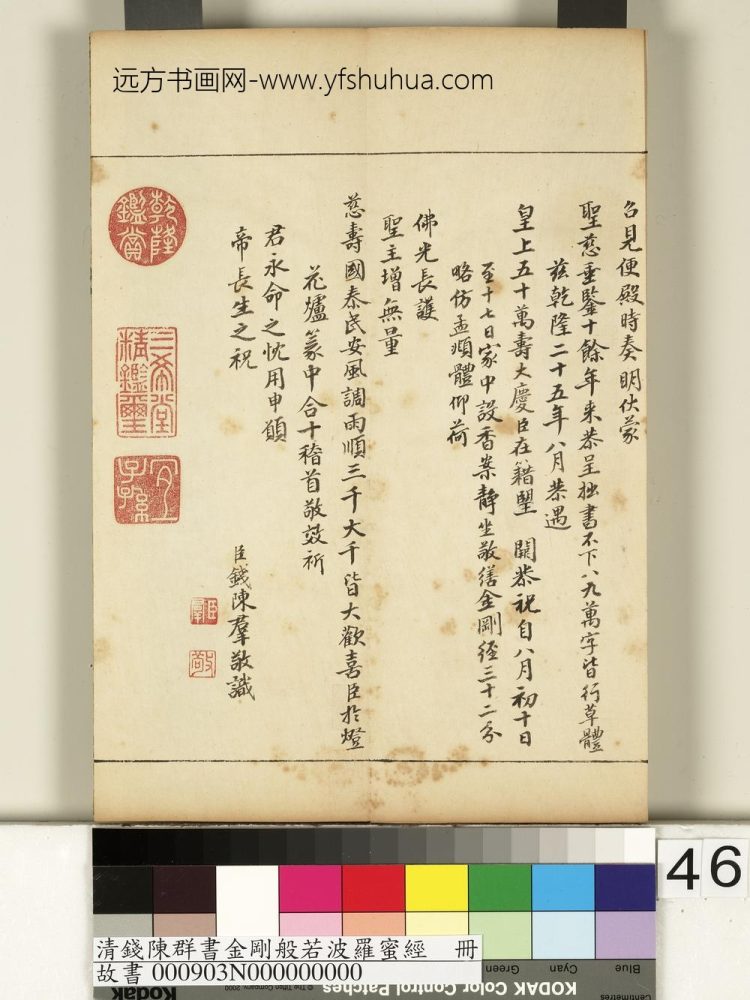 远方书画网-www.yfshuhua.com
召見便殿時奏明伏蒙
聖慈垂鑒十餘年来恭呈拙書不下八九萬字皆行草體
兹乾隆二十五年八月恭遇
皇上五十萬壽大慶臣在籍望 闕恭祝自八月初十日
至十七日家中設香案靜坐敬繕金剛經三十二分
略仿孟頫體仰荷
佛光長護
聖主增無量
慈壽國泰民安風調雨順三千大千皆大歡喜臣於燈
花爐篆中合十稽首敬效祈
君永命之忱用申願
帝長生之祝
臣錢陳羣敬識
乾隆鑑賞
三希堂精鑑璽
宜子孫
臣羣
敬
46
清錢陳群書金剛般若波羅蜜經 冊
故書 000903N000000000
Blue
Cyan
Green
Centimetres
KODAK Color Control Patches
© The Tiffen Company, 2000
Kodak